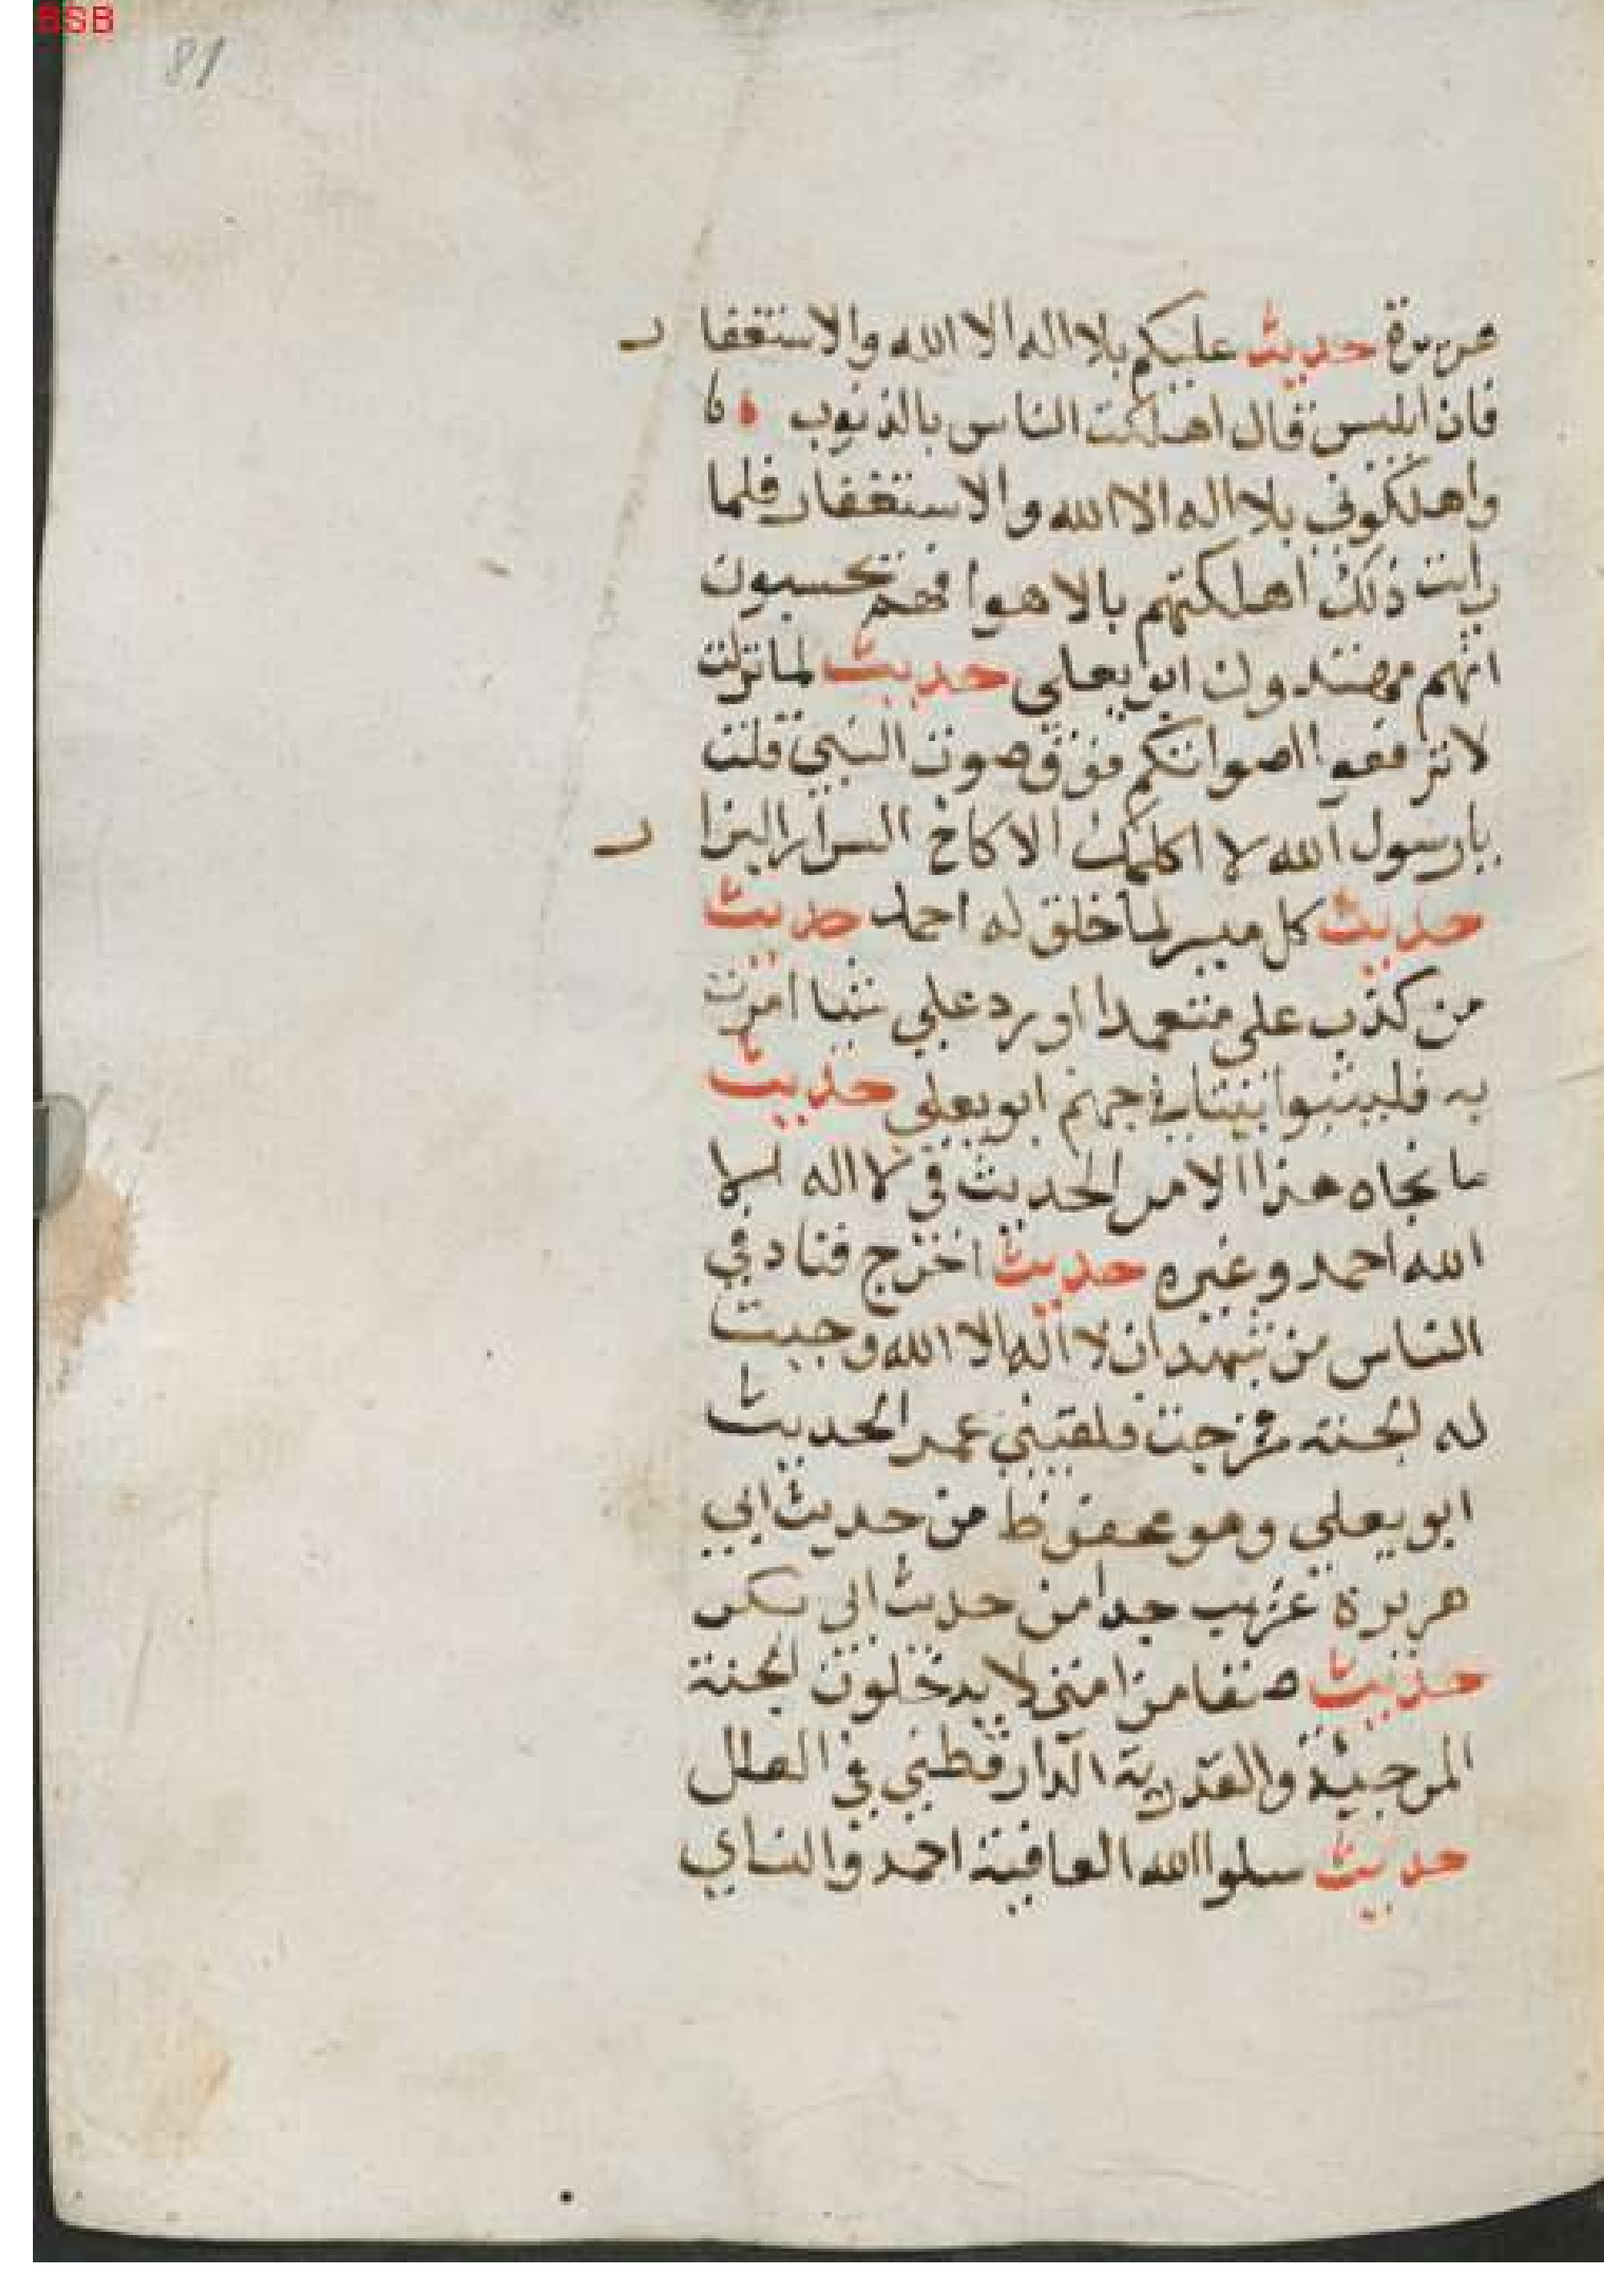 BSB
81
هريرة حديث عليكم بلا اله الا الله والاستغفار
فان ابليس قال اهلكت الناس بالذنوب
واهلكوني بلا اله الا الله والاستغفار فلما
رايت ذلك اهلكتهم بالاهوا فهم يحسبون
انهم مهتدون ابو يعلى حديث لما نزلت
لا ترفعوا اصواتكم فوق صوت النبي قلت
يا رسول الله لا اكلمك الا كاخ السرار البزار
حديث كل ميسر لما خلق له احمد حديث
من كذب على متعمدا او رد علي شيا امرت
به فليتبوا بيتا في جهنم ابو يعلى حديث
ما نجاه هذا الامر الحديث في لا اله الا
الله احمد وغيره حديث اخرج فناد في
الناس من شهد ان لا اله الا الله وجبت
له الجنة فخرجت فلقيني عمر الحديث
ابو يعلى وهو محفوظ من حديث ابي
هريرة غريب جدا من حديث ابي بكر
حديث صنفا من امتي لا يدخلون الجنة
المرجيئة والقدرية الدارقطني في العلل
حديث سلوا الله العافية احمد والنساي